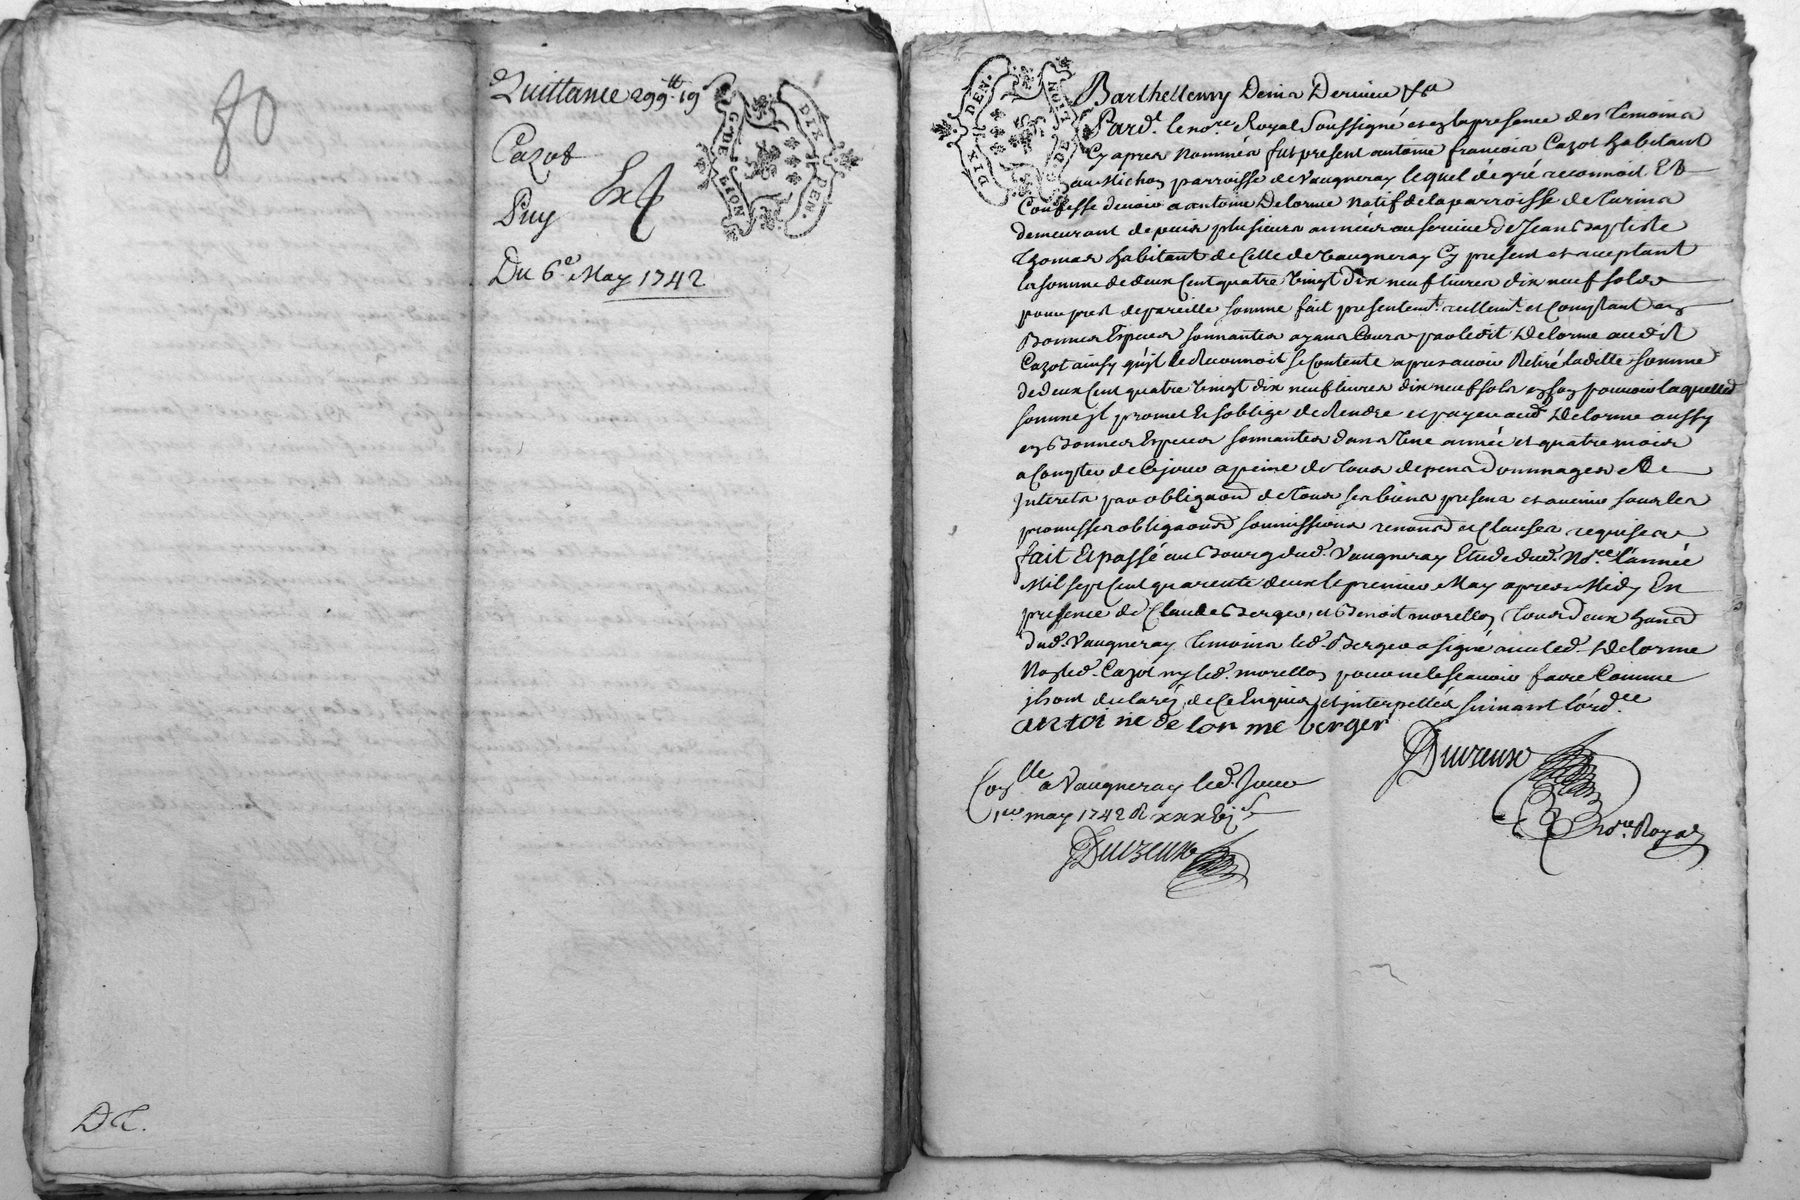 80
Quittance 299ᵗᵗ 19ˢ
Cazot
Puy
Ext
Du 6ᵉ May 1742
G. DE LYON
DIX DEN.
D C.
DIX DEN.
G. DE LYON
Barthellemy Denis
Pardᵗ. le noʳᵉ Royal Soussigné et en la presence des Temoins
Cy apres nommés fut present antoine francois Cazot habitant
au Michon parroisse de Vaugneray lequel de gré reconnoit Et
Confesse devoir a antoine Delorme natif de la parroisse de Turins
demeurant depuis plusieurs années au service de Jean Baptiste
Thomas habitant de Celle de Vaugneray Cy present et acceptant
la somme de deux Cent quatre Vingt Dix neuf livres dix neuf sols
pour prest de pareille somme fait presentemᵗ. reellemᵗ. et Comptant en
Bonnes Espèces sonnantes ayans Cours par ledit Delorme audit
Cazot ainsy qu'il le Reconnoit se Contente apres avoir Retiré laditte somme
de deux Cent quatre Vingt dix neuf livres dix neuf sols en son pouvoir laquelle
somme il promet Et s'oblige de Rendre et payer audᵗ Delorme aussy
en Bonnes Especes sonnantes dans Une année et quatre mois
a Compter de Ce jour a peine de tous depens Dommages Et
Interets par obligaoⁿ de tous ses biens presens et avenir sous les
promesses obligaons soumissions renonᵒⁿˢ et Clauses requises
fait Et passé au Bourg dudᵗ. Vaugneray Etude dudᵗ. Noʳᵉ l'année
Mil sept Cent quarente deux le premier May apres Midy En
presence de Claude Berger, et Benoit morellon tous deux
dudᵗ. Vaugneray Temoins ledᵗ. Berger a signé avec ledᵗ. Delorme
Non ledᵗ. Cazot ny ledᵗ. morellon pour ne le scavoir faire Comme
ils ont declaré, de Ce Enquis et interpellés suivant l'ordᶜᵉ
antoine de lor me berger
Duvreux
noʳᵉ Royal
Conˡˡᵉ a Vaugneray ledᵗ. Jour
1ᵉʳ may 1742 R
Duvreux